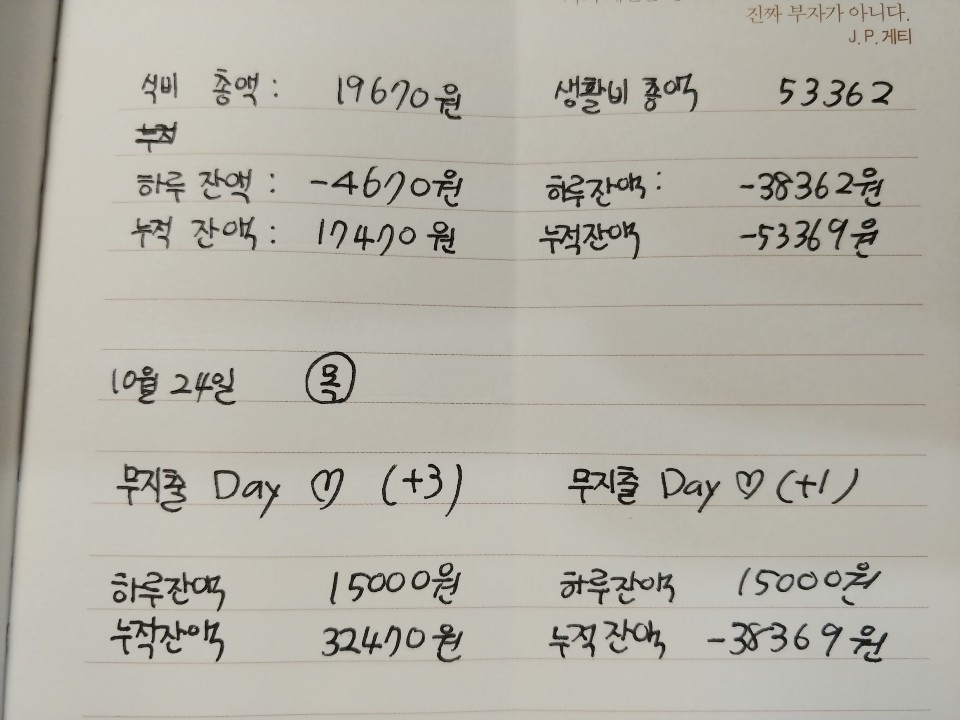 진짜 부자가 아니다.
J. P. 게티
식비 총액 : 19670원 생활비 총액 53362
누적
하루 잔액 : -4670원 하루잔액 : -38362원
누적 잔액 : 17470원 누적잔액 -53369원
10월 24일 목
무지출 Day ♡ (+3) 무지출 Day ♡ (+1)
하루잔액 15000원 하루잔액 15000원
누적잔액 32470원 누적잔액 -38369원